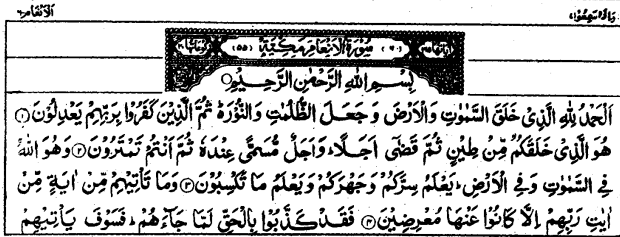 واذا سمعوا الانعام ٦
(٦) سُوْرَةُ الْاَنْعَامِ مَكِّيَّةٌ (٥٥)
بِسْمِ اللهِ الرَّحْمٰنِ الرَّحِيْمِ
اَلْحَمْدُ لِلّٰهِ الَّذِىْ خَلَقَ السَّمٰوٰتِ وَالْاَرْضَ وَجَعَلَ الظُّلُمٰتِ وَالنُّوْرَ۬ؕ ثُمَّ الَّذِيْنَ كَفَرُوْا بِرَبِّهِمْ يَعْدِلُوْنَ ﴿١﴾
هُوَ الَّذِىْ خَلَقَكُمْ مِّنْ طِيْنٍ ثُمَّ قَضٰۤى اَجَلًا ؕ وَاَجَلٌ مُّسَمًّى عِنْدَهٗ ثُمَّ اَنْتُمْ تَمْتَرُوْنَ ﴿٢﴾ وَهُوَ اللهُ
فِى السَّمٰوٰتِ وَفِى الْاَرْضِ ؕ يَعْلَمُ سِرَّكُمْ وَجَهْرَكُمْ وَيَعْلَمُ مَا تَكْسِبُوْنَ ﴿٣﴾ وَمَا تَاْتِيْهِمْ مِّنْ اٰيَةٍ مِّنْ
اٰيٰتِ رَبِّهِمْ اِلَّا كَانُوْا عَنْهَا مُعْرِضِيْنَ ﴿٤﴾ فَقَدْ كَذَّبُوْا بِالْحَقِّ لَمَّا جَآءَهُمْ ؕ فَسَوْفَ يَاْتِيْهِمْ